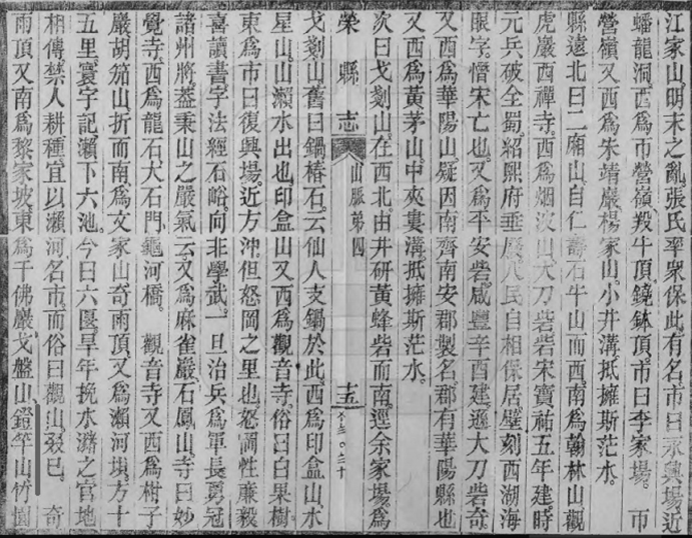 江家山明末之亂張氏率衆保此有名市曰永興場近
蟠龍洞西爲市營嶺殺牛頂鐃鉢頂市曰李家場 市
營嶺又西爲朱靖巖楊家山小井溝抵擁斯茫水
縣遠北曰二廂山自仁壽石牛山而西南爲翰林山觀
虎巖西禪寺西爲烟波山大刀砦砦宋寶祐五年建時
元兵破全蜀紹熙府垂 人民自相保居壁刻西湖海
眼字憯宋亡也又爲平安砦咸豐辛酉建遜大刀砦奇
又西爲華陽山疑因南齊南安郡製名郡有華陽縣也
又西爲黃茅山中夾婁溝抵擁斯茫水
次曰戈剡山在西北由井研黃蜂砦而南逕余家場爲
榮縣志 山脈第四 十五
戈剡山舊曰鍋樁石云仙人支鍋於此西爲印盒山水
星山山瀨水出也印盒山又西爲觀音寺俗曰白果樹
東爲市曰復興場近方沖但怒岡之里也怒岡性廉毅
喜讀書字法經石峪向非學武一旦治兵爲軍長勇冠
諸州將蓋秉山之嚴氣云又爲麻雀巖石鳳山寺曰妙
覺寺西爲龍石大石門龜河橋 觀音寺又西爲柑子
巖胡笳山折而南爲文家山奇雨頂又爲瀨河埧方十
五里寰字記瀨下六池今曰六匽旱年挽水瀦之官地
相傳禁人耕種宜以瀨河名市而俗曰觀山叕已 奇
雨頂又南爲黎家坡東爲千佛巖戈盤山鐙竿山竹園